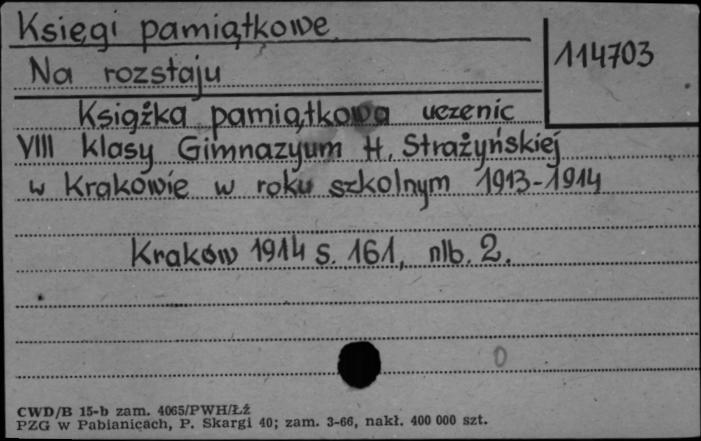 Księgi pamiątkowe
114703
Na rozstaju
Książka pamiątkowa uczenic
VIII klasy Gimnazyum H. Strażyńskiej
w Krakowie w roku szkolnym 1913-1914
Kraków 1914 s. 161, nlb. 2.
0
CWD/B 15-b zam. 4065/PWH/Łź
PZG w Pabianicach, P. Skargi 40; zam. 3-66, nakł. 400 000 szt.